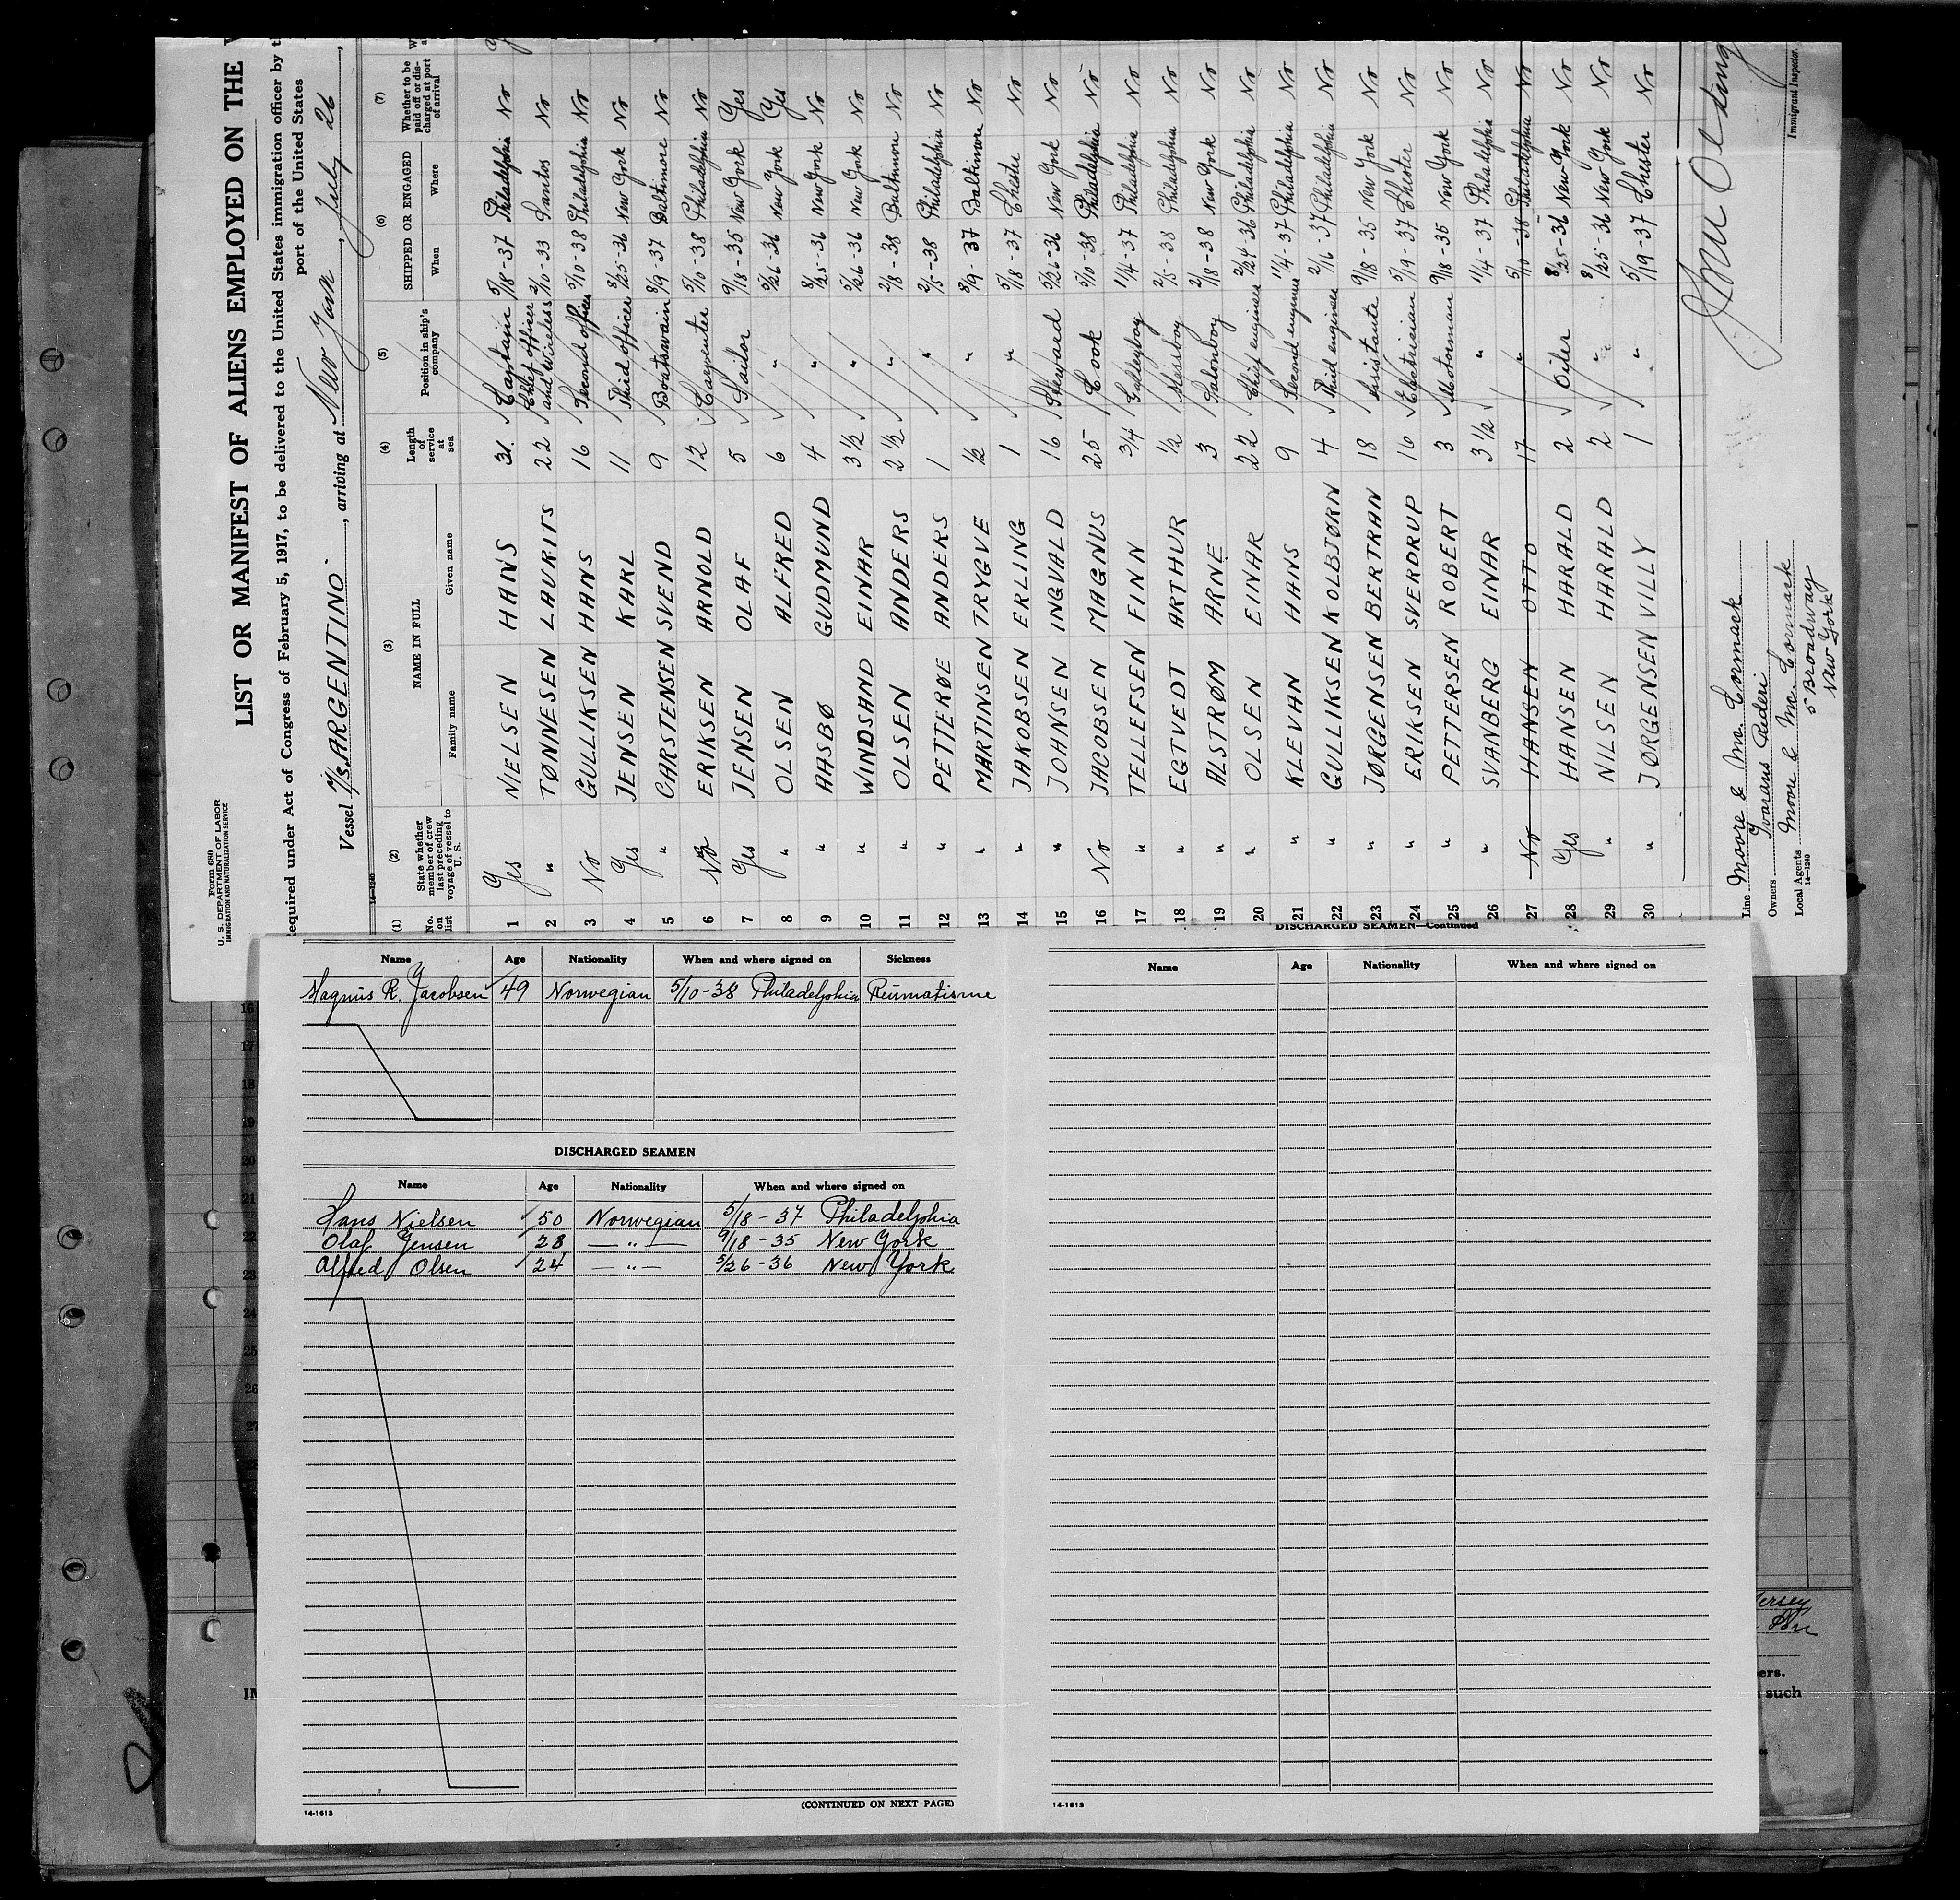 Form 680
U. S. DEPARTMENT OF LABOR
IMMIGRATION AND NATURALIZATION SERVICE
LIST OR MANIFEST OF ALIENS EMPLOYED ON THE
Required under Act of Congress of February 5, 1917, to be delivered to the United States immigration officer by
port of the United States
Vessel M/S. ARGENTINO, arriving at New York, July 26,
14-1240
(1) (2) (3) (4) (5) (6) (7)
No. on list
State whether member of crew last preceding voyage of vessel to U. S.
NAME IN FULL
Family name Given name
Length of service at sea
Position in ship's company
SHIPPED OR ENGAGED
When Where
Whether to be paid off or discharged at port of arrival
1 Yes NIELSEN HANS 31 Captain 5/18-37 Philadelphia No
2 " TØNNESEN LAURITS 22 Chief officer and Wireless 2/10-33 Santos No
3 No GULLIKSEN HANS 16 Second officer 5/10-38 Philadelphia No
4 Yes JENSEN KARL 11 Third officer 8/25-36 New York No
5 " CARSTENSEN SVEND 9 Boatswain 8/9 37 Baltimore No
6 No ERIKSEN ARNOLD 12 Carpenter 5/10-38 Philadelphia No
7 Yes JENSEN OLAF 5 Sailor 9/18-35 New York Yes
8 " OLSEN ALFRED 6 " 5/26-36 New York Yes
9 " AASBØ GUDMUND 4 " 8/25-36 New York No
10 " WINDSAND EINAR 3 1/2 " 5/26-36 New York No
11 " OLSEN ANDERS 2 1/2 " 2/8-38 Baltimore No
12 " PETTERØE ANDERS 1 " 2/5-38 Philadelphia No
13 " MARTINSEN TRYGVE 1/2 " 8/9 37 Baltimore No
14 " JAKOBSEN ERLING 1 " 5/18-37 Chester No
15 " JOHNSEN INGVALD 16 Steward 5/26-36 New York No
16 No JACOBSEN MAGNUS 25 Cook 5/10-38 Philadelphia No
17 " TELLEFSEN FINN 3/4 Galleyboy 11/4-37 Philadelphia No
18 " EGTVEDT ARTHUR 1/2 Messboy 2/5-38 Philadelphia No
19 " ALSTRØM ARNE 3 Salonboy 2/18-38 New York No
20 " OLSEN EINAR 22 Chief engineer 2/24-36 Philadelphia No
21 " KLEVAN HANS 9 Second engineer 11/4-37 Philadelphia No
22 " GULLIKSEN KOLBJØRN 4 Third engineer 2/16-37 Philadelphia No
23 " JØRGENSEN BERTRAN 18 Assistante 9/18-35 New York No
24 " ERIKSEN SVERDRUP 16 Electrician 5/19-37 Chester No
25 " PETTERSEN ROBERT 3 Motorman 9/18-35 New York No
26 " SVANBERG EINAR 3 1/2 " 11/4-37 Philadelphia No
27 No HANSEN OTTO 17 " 5/10-38 Philadelphia No
28 Yes HANSEN HARALD 2 Oiler 8/25-36 New York No
29 " NILSEN HARALD 2 " 8/25-36 New York No
30 " JØRGENSEN VILLY 1 " 5/19-37 Chester No
Line Moore & Mc. Cormack
Owners Ivarans Rederi
Local Agents Moore & Mc. Cormack
5 Broadway
New York
14-1240
Immigrant Inspector.
Name Age Nationality When and where signed on Sickness
Magnus R. Jacobsen 49 Norwegian 5/10-38 Philadelphia Reumatisme
DISCHARGED SEAMEN
Name Age Nationality When and where signed on
Hans Nielsen 50 Norwegian 5/18-37 Philadelphia
Olaf Jensen 28 —"— 9/18-35 New York
Alfred Olsen 24 —"— 5/26-36 New York
(CONTINUED ON NEXT PAGE)
14-1613
DISCHARGED SEAMEN—Continued
Name Age Nationality When and where signed on
14-1613
16
17
18
19
20
21
22
23
24
25
26
27
ersey
ers.
such